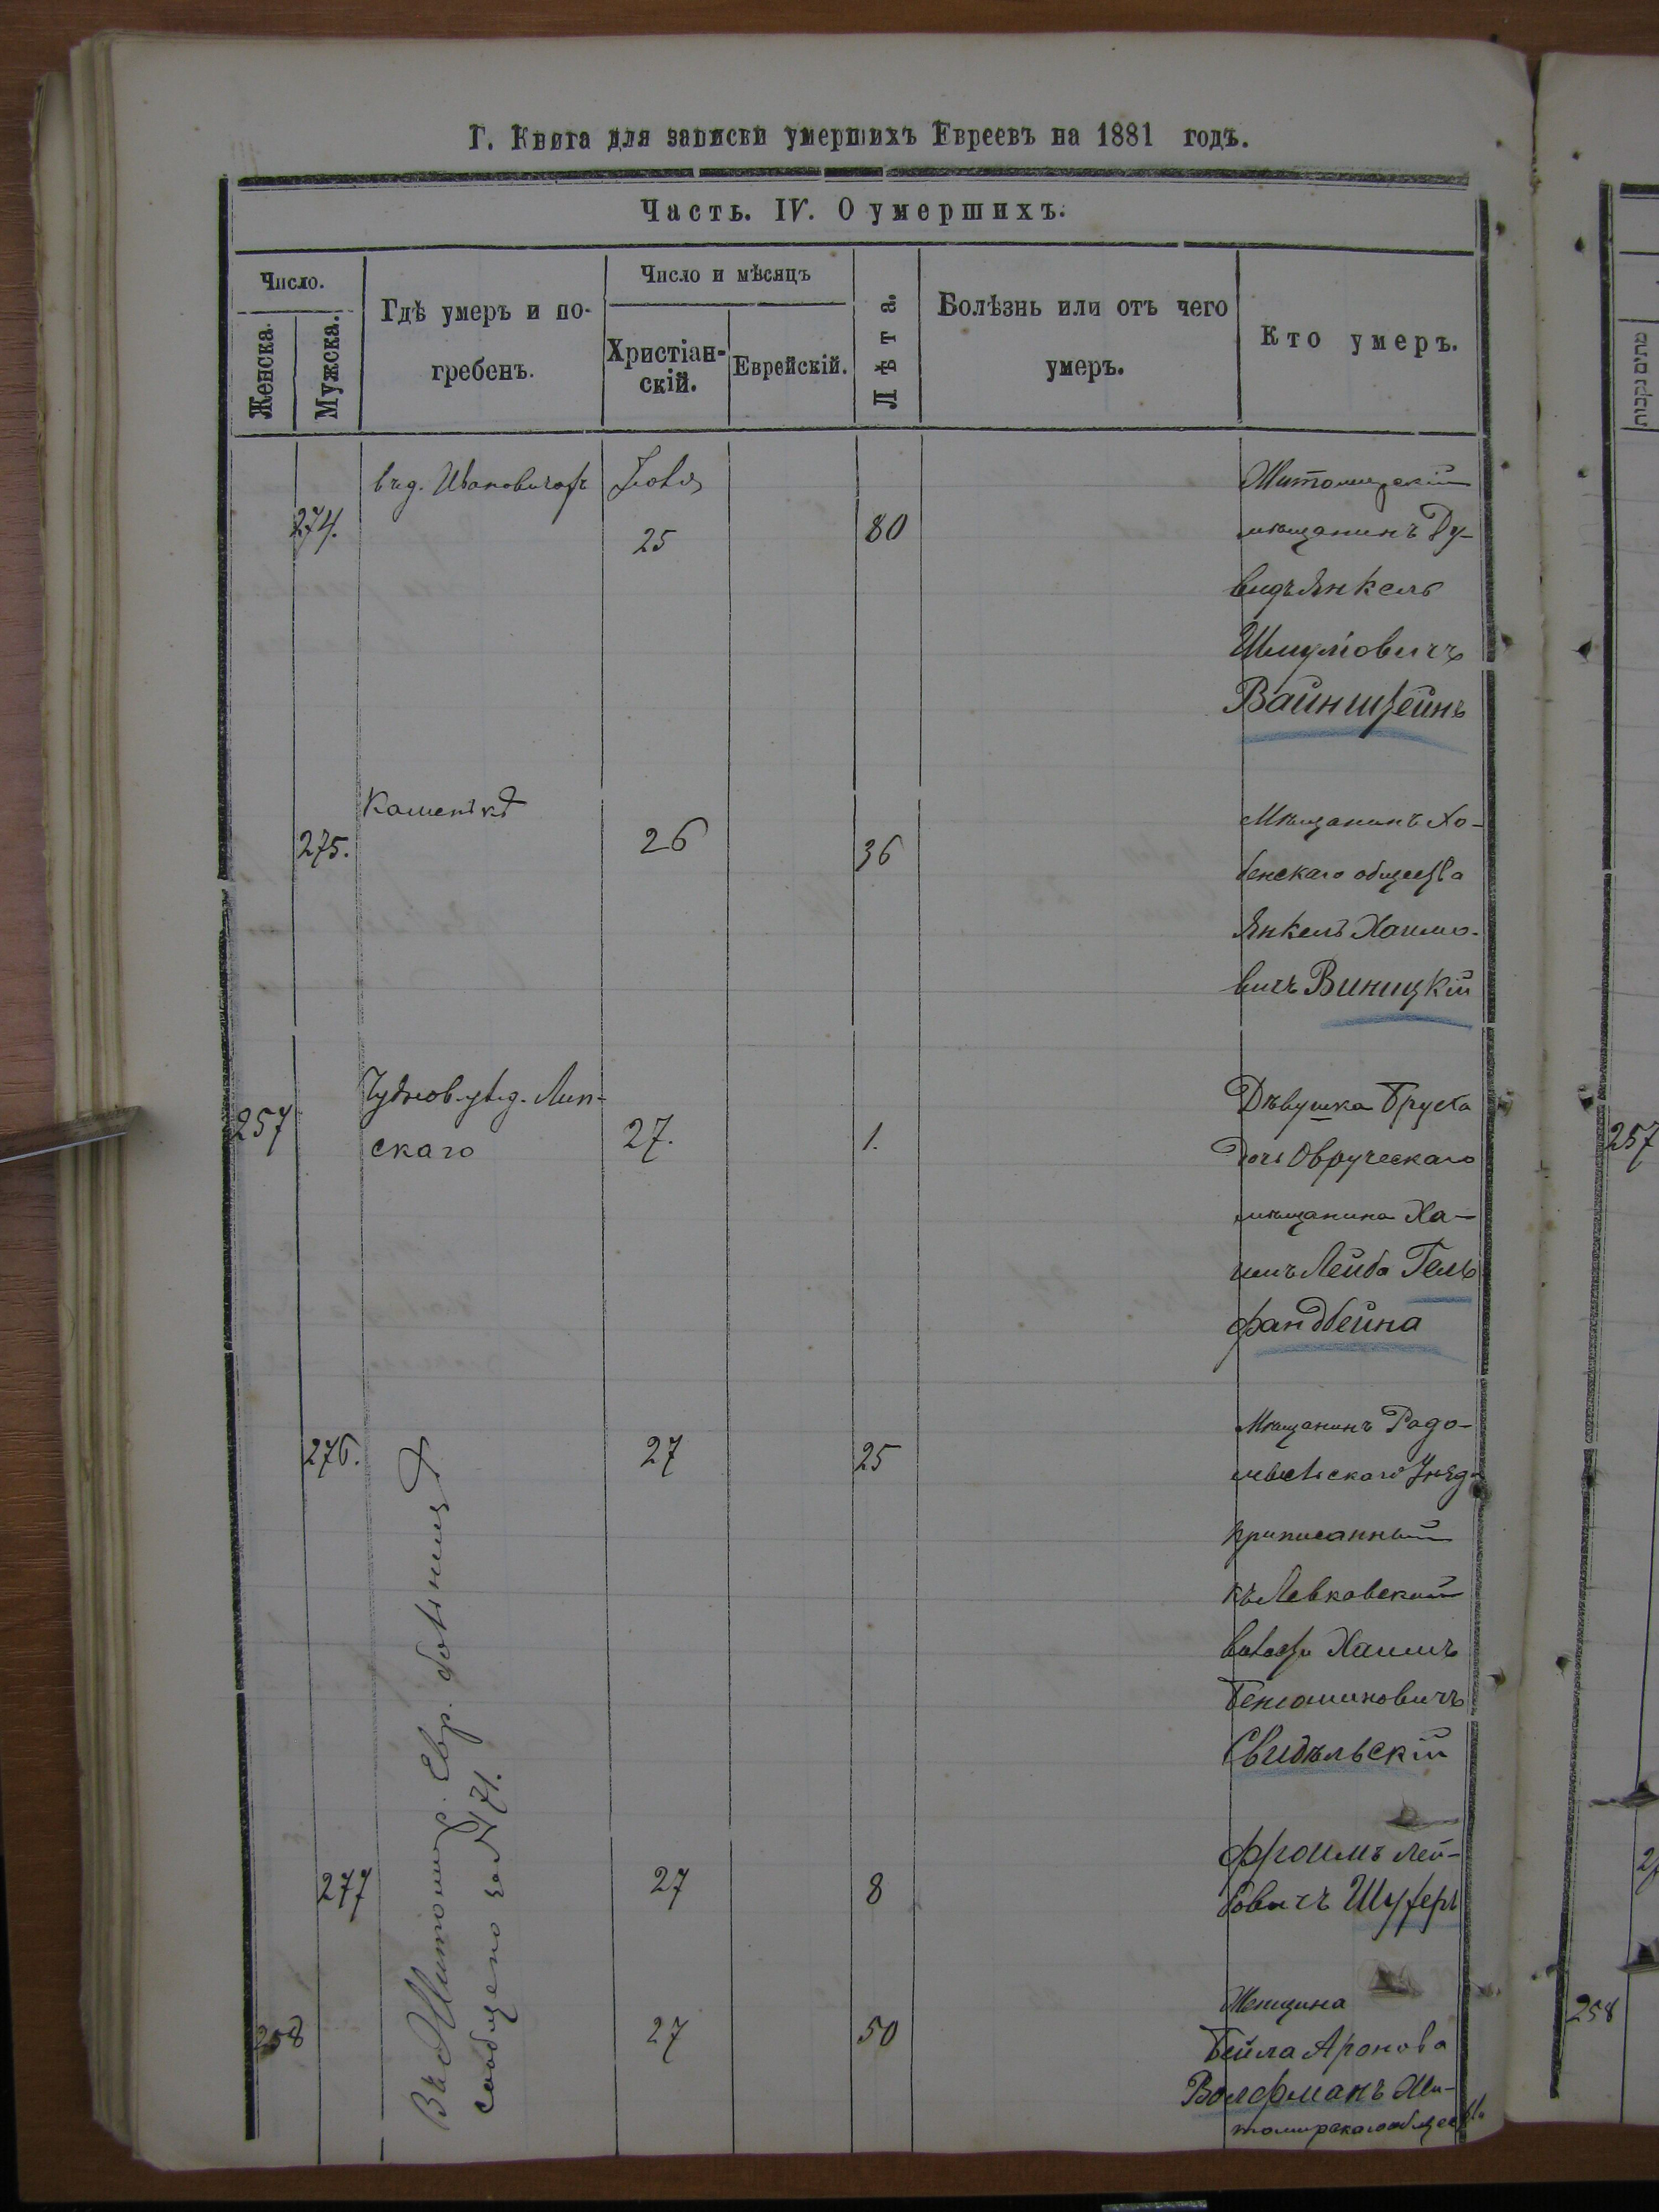 Г. Книга для записки умершихъ Евреевъ на 1881 годъ.
Часть. IV. О умершихъ.
Число.
Женска.
Мужска.
Гдѣ умеръ и по-
гребенъ.
Число и мѣсяцъ
Христіан-
скій.
Еврейскій.
Лѣта.
Болѣзнь или отъ чего
умеръ.
Кто умеръ.
274.
въ д. Ивановичахъ
25
80
Житомирскій
мѣщанинъ Ду-
видъ Янкель
Шмулiовичъ
Вайнштейнъ
275.
Каменкѣ
26
36
Мѣщанинъ Хо-
бенскаго общества
Янкель Хаимо-
вичъ Виницкій
257
Чуднов. ул. д. Лип-
скаго
27.
1.
Дѣвушка Бруха
дочь Овручскаго
мѣщанина Ха-
имъ Лейба Гель
фандбейна
276.
27
25
Мѣщанинъ Радо-
мысльскаго уѣзд.
приписанный
къ Левковской
волости Хаимъ
Бенюминовичъ
Свидѣльскій
Въ Житомир. Евр. больницѣ
сообщено за № 71.
277
27
8
Фроимъ Лей-
бовичъ Шустеръ
258
27
50
Женщина
Бейла Аронова
Волфманъ Жи-
томирскаго общества
257
258